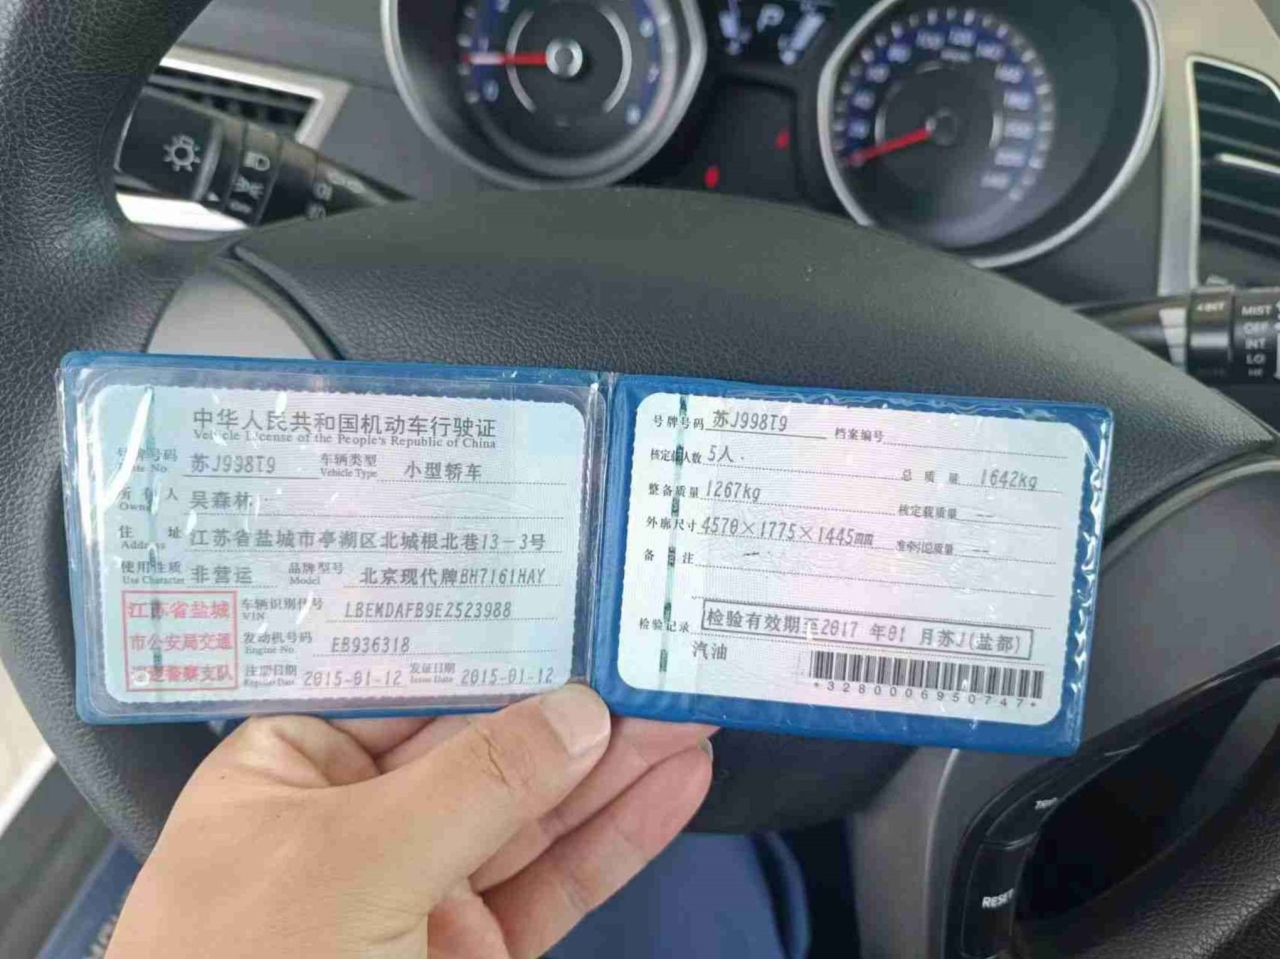 中华人民共和国机动车行驶证
Vehicle License of the People's Republic of China
号牌号码 苏J998T9 车辆类型 小型轿车
Plate No. Vehicle Type
所有人 吴森林
Owner
住址 江苏省盐城市亭湖区北城根北巷13-3号
Address
使用性质 非营运 品牌型号 北京现代牌BH7161HAY
Use Character Model
江苏省盐城
市公安局交通
巡逻警察支队
车辆识别代号 LBEMDAFB9EZ523988
VIN
发动机号码 EB936318
Engine No.
注册日期 2015-01-12 发证日期 2015-01-12
Register Date Issue Date
号牌号码 苏J998T9 档案编号
核定载人数 5人 总质量 1642kg
整备质量 1267kg 核定载质量 --
外廓尺寸 4570×1775×1445mm 准牵引总质量 --
备注 —
检验记录 检验有效期至2017年01月苏J(盐都)
汽油
*3280006950747*
P
MIST
OFF
INT
LO
HI
TRIP
RESET